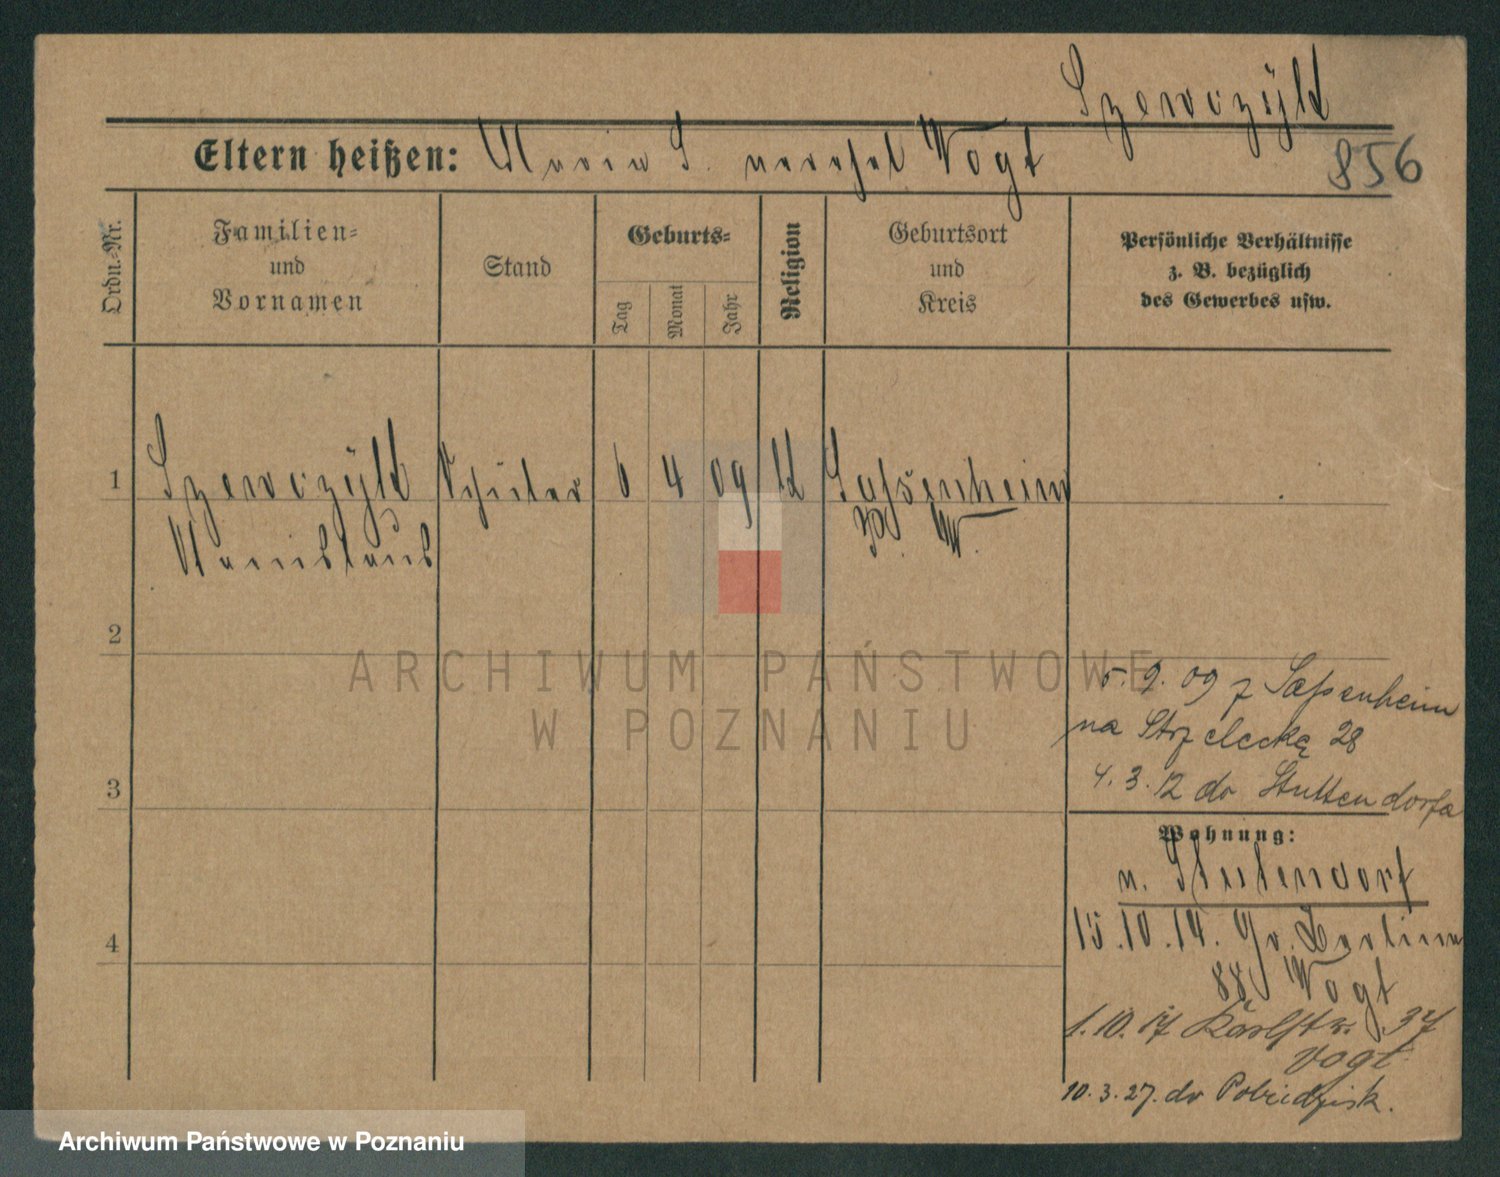 Szewczyk
Eltern heißen: Maria S. verehel Vogt
856
Ordn.-Nr.
Familien-
und
Vornamen
Stand
Geburts-
Tag
Monat
Jahr
Religion
Geburtsort
und
Kreis
Persönliche Verhältnisse
z. B. bezüglich
des Gewerbes usw.
1 Szewczyk Schüler 6 4 09 K Sassenheim
Stanislaus P. W.
2
3
4
5. 9. 09 z Sassenheim
na Strzelecką 28
4. 3. 12 do Stuttendorfa
Wohnung:
n. Stutendorf
15.10.14. Gr. Berliner
88 Vogt
1.10.17 Karlstr. 37
Vogt
10.3.27. do Pobiedzisk.
ARCHIWUM PAŃSTWOWE
W POZNANIU
Archiwum Państwowe w Poznaniu